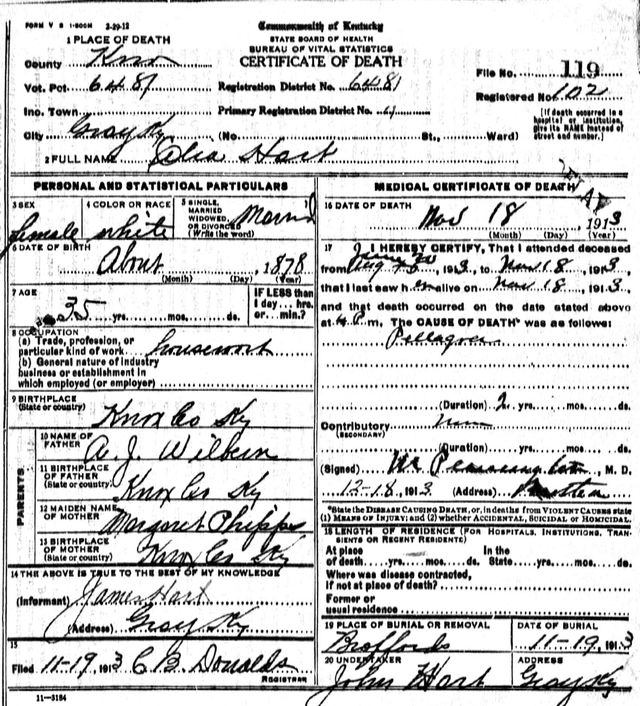 FORM V S 1-500M 2-29-12
Commonwealth of Kentucky
STATE BOARD OF HEALTH
BUREAU OF VITAL STATISTICS
CERTIFICATE OF DEATH
1 PLACE OF DEATH
County Knox
Vot. Pct 6481 Registration District No. 6481
Inc. Town Primary Registration District No.
City Gray Ky (No. St., Ward)
File No. 119
Registered No. 102
[If death occurred in a hospital or institution, give its NAME instead of street and number.]
2 FULL NAME Hart
PERSONAL AND STATISTICAL PARTICULARS
3 SEX female
4 COLOR OR RACE white
5 SINGLE, MARRIED WIDOWED, OR DIVORCED (Write the word) Married
6 DATE OF BIRTH
About 1878
(Month) (Day) (Year)
7 AGE
35 yrs. mos. ds.
IF LESS than 1 day hrs. or min.?
8 OCCUPATION
(a) Trade, profession, or particular kind of work housework
(b) General nature of industry business or establishment in which employed (or employer)
9 BIRTHPLACE (State or country)
Knox Co Ky
PARENTS
10 NAME OF FATHER
A. J. Wilburn
11 BIRTHPLACE OF FATHER (State or country)
Knox Co Ky
12 MAIDEN NAME OF MOTHER
Margaret Phipps
13 BIRTHPLACE OF MOTHER (State or country)
Knox Co Ky
14 THE ABOVE IS TRUE TO THE BEST OF MY KNOWLEDGE
(Informant) James Hart
(Address) Gray Ky
15
Filed 11-19, 1913 C B Donalds
REGISTRAR
11-3184
MEDICAL CERTIFICATE OF DEATH
16 DATE OF DEATH
Nov 18 1913
(Month) (Day) (Year)
17 I HEREBY CERTIFY, That I attended deceased
from 1913, to Nov 18, 1913,
that I last saw h er alive on Nov 18, 1913.
and that death occurred on the date stated above
at 4 P m, The CAUSE OF DEATH* was as follows:
Pellagra
(Duration) 2 yrs. mos. ds.
Contributory
(SECONDARY)
(Duration) yrs. mos. ds.
(Signed) M. D.
12-18, 1913 (Address)
*State the DISEASE CAUSING DEATH, or, in deaths from VIOLENT CAUSES state (1) MEANS OF INJURY; and (2) whether ACCIDENTAL, SUICIDAL or HOMICIDAL.
18 LENGTH OF RESIDENCE (FOR HOSPITALS, INSTITUTIONS, TRANSIENTS OR RECENT RESIDENTS)
At place of death yrs. mos. ds. In the State yrs. mos. ds.
Where was disease contracted, if not at place of death?
Former or usual residence
19 PLACE OF BURIAL OR REMOVAL
Boffords
DATE OF BURIAL
11-19, 1913
20 UNDERTAKER
John Hart
ADDRESS
Gray Ky